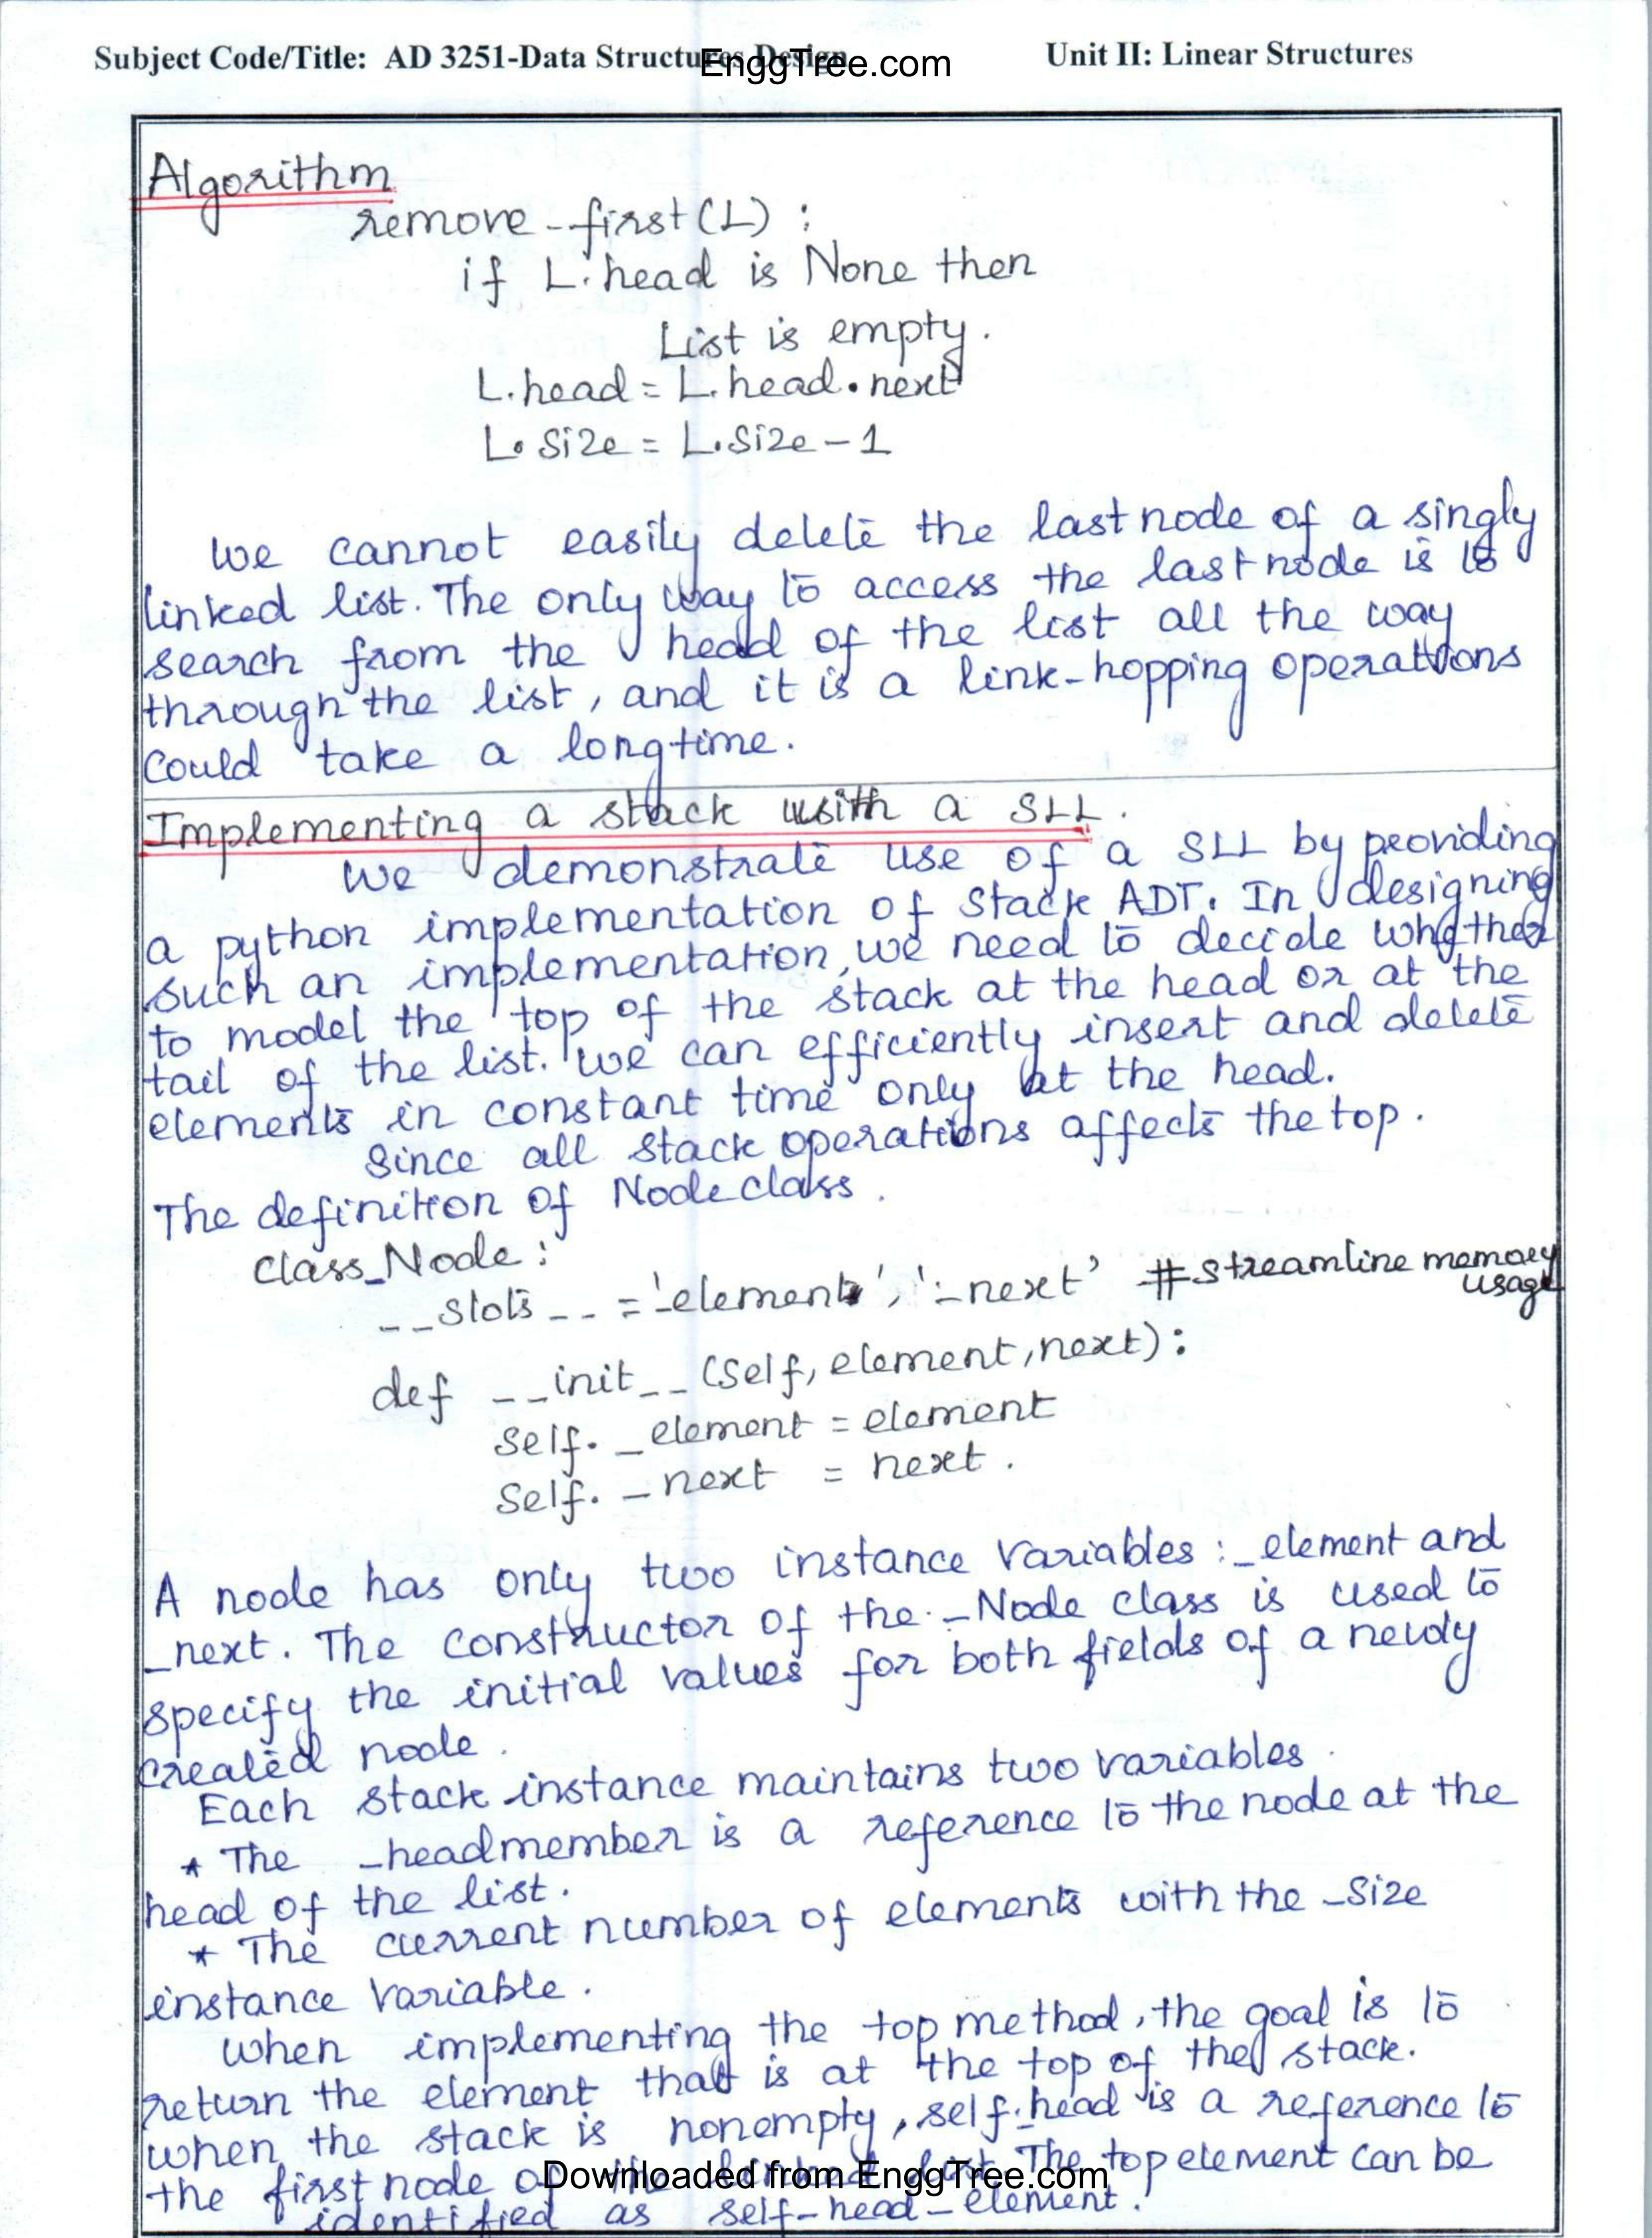 Subject Code/Title: AD 3251-Data Structures Design
EnggTree.com
Unit II: Linear Structures
Algorithm
remove_first(L) :
if L.head is None then
List is empty.
L.head = L.head.next
L.size = L.size - 1
We cannot easily delete the last node of a singly
linked list. The only way to access the last node is to
search from the head of the list all the way
through the list, and it is a link-hopping operations
could take a long time.
Implementing a stack with a SLL.
We demonstrate use of a SLL by peoviding
a python implementation of Stack ADT. In designing
such an implementation, we need to decide whether
to model the top of the stack at the head or at the
tail of the list. We can efficiently insert and delete
elements in constant time only at the head.
Since all stack operations affects the top.
The definition of Node class.
class_Node :
__slots__ = '_element', '_next' #streamline memory
usage
def __init__ (Self, element, next) :
Self._element = element
Self._next = next.
A node has only two instance variables : _element and
_next. The constructor of the _Node class is used to
specify the initial values for both fields of a newly
created node.
Each stack instance maintains two variables.
* The _head member is a reference to the node at the
head of the list.
* The current number of elements with the _size
instance variable.
When implementing the top method, the goal is to
return the element that is at the top of the stack.
when the stack is nonempty, self._head is a reference to
the first node of the linked list. The top element can be
identified as self-head-element.
Downloaded from EnggTree.com